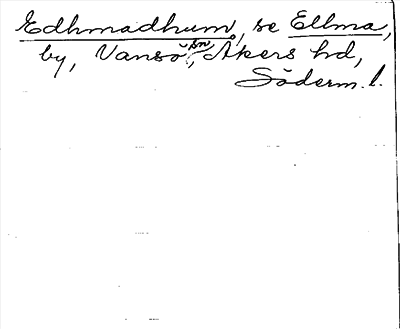 Edhmadhum, se Ellma,
by, Vansö sn, Åkers hd,
Söderm. l.